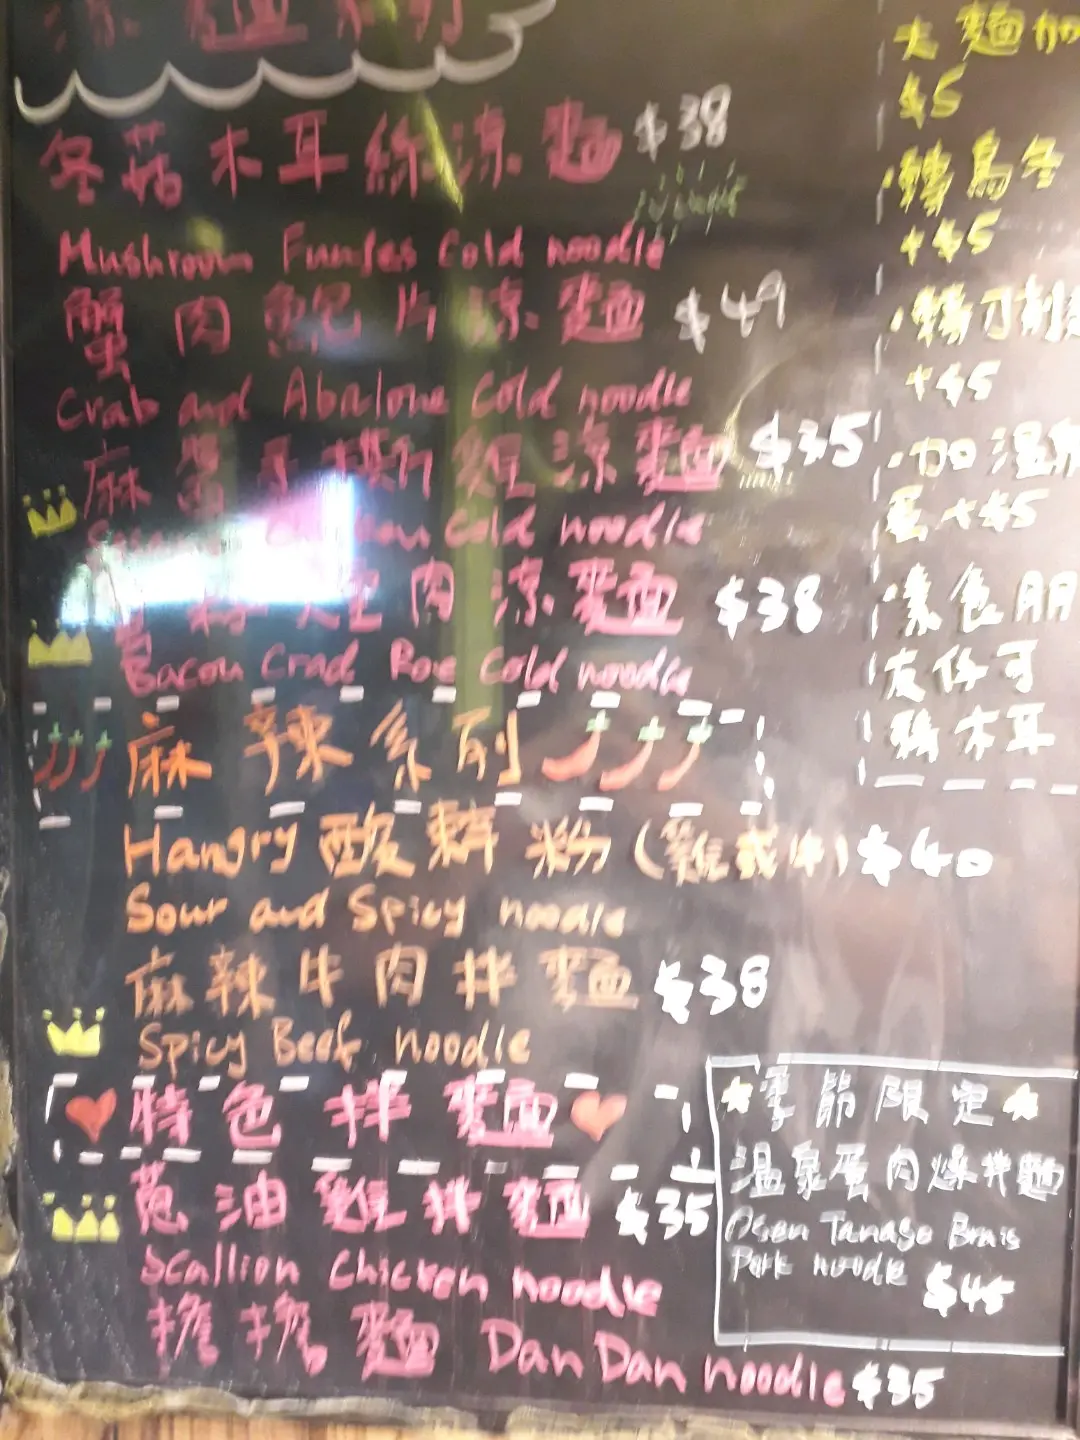 涼麵系列
冬菇木耳絲涼麵 $38
Mushroom Funges Cold noodle
蟹肉鮑片涼麵 $49
Crab and Abalone Cold noodle
麻醬手撕雞涼麵 $35
Cold noodle
肉涼麵 $38
Bacon Crad Roe Cold noodle
麻辣系列
Hangry 酸辣粉(雞或牛) $40
Sour and Spicy noodle
麻辣牛肉拌麵 $38
Spicy Beef noodle
特色拌麵
蔥油雞拌麵 $35
Scallion Chicken noodle
擔擔麵 Dan Dan noodle $35
大麵加
$5
·轉烏冬
+$5
·轉刀削
+$5
·加溫
蛋+$5
·素食朋
友仔可
轉木耳
季節限定
溫泉蛋肉燥拌麵
Osen Tanago Brais
Pork noodle $45